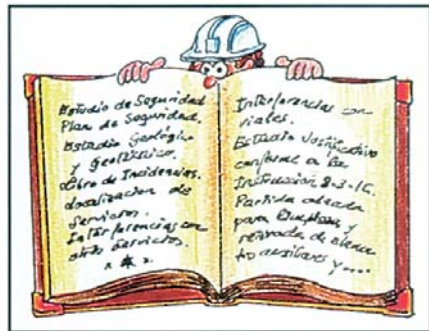 Estudio de Seguridad
Plan de Seguridad.
Estudio Geológico
y Geotécnico.
Libro de Incidencias.
Localización de
Servicios.
Interferencias con
otros Servicios.
Interferencias con
viales.
Estudio Justificativo
conforme a la
Instrucción 8-3-IC.
Partida alzada
para limpieza y
retirada de elemen
tos auxiliares y....